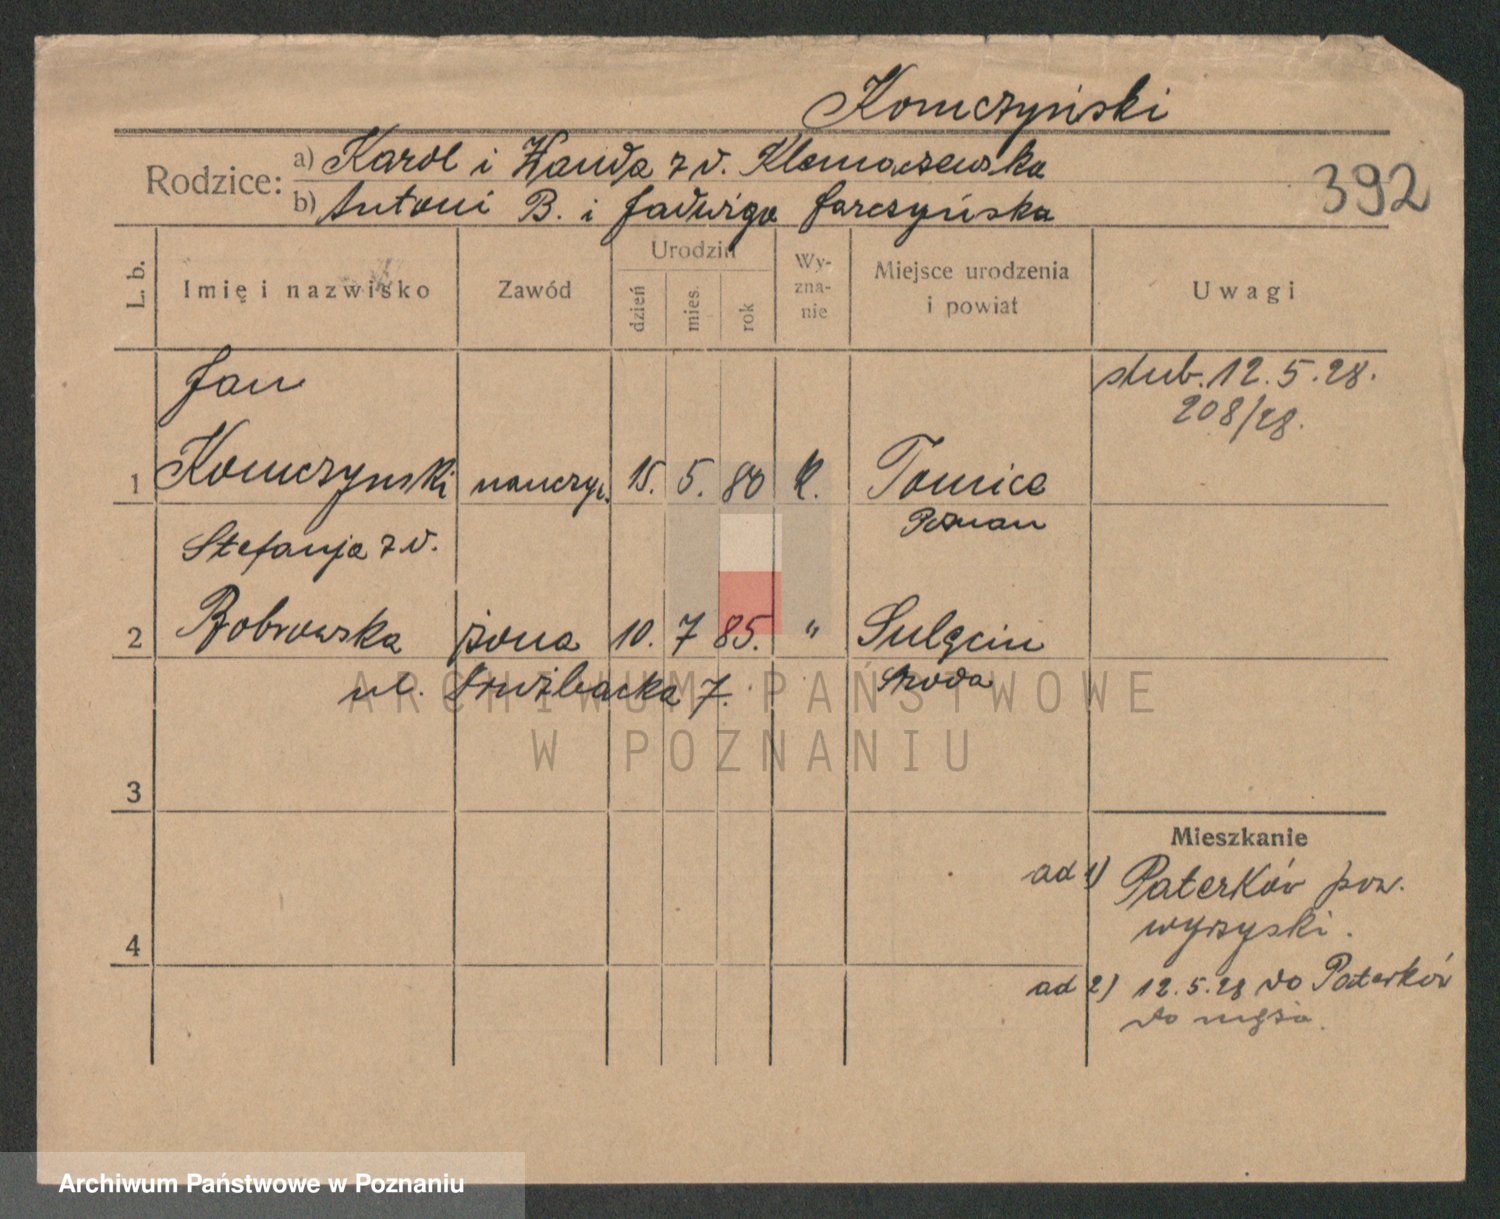 Komczyński
Rodzice: a) Karol i Wanda z d. Klemaszewska
b) Antoni B. i Jadwiga Jarczyńska
392
L. b. Imię i nazwisko Zawód Urodzin dzień mies. rok Wy-zna-nie Miejsce urodzenia i powiat Uwagi
Jan ślub. 12.5.28.
208/28.
1 Komczynski nauczyc. 15. 5. 80 k. Tomice
Poznan
Stefanja z d.
2 Bobrowska żona 10. 7 85. " Sulęcin
ul. Drużbacka 7. Sroda
ARCHIWUM PAŃSTWOWE
W POZNANIU
3
Mieszkanie
ad 1) Paterków pow.
wyrzyski.
4
ad 2) 12.5.28 do Paterków
do męża.
Archiwum Państwowe w Poznaniu